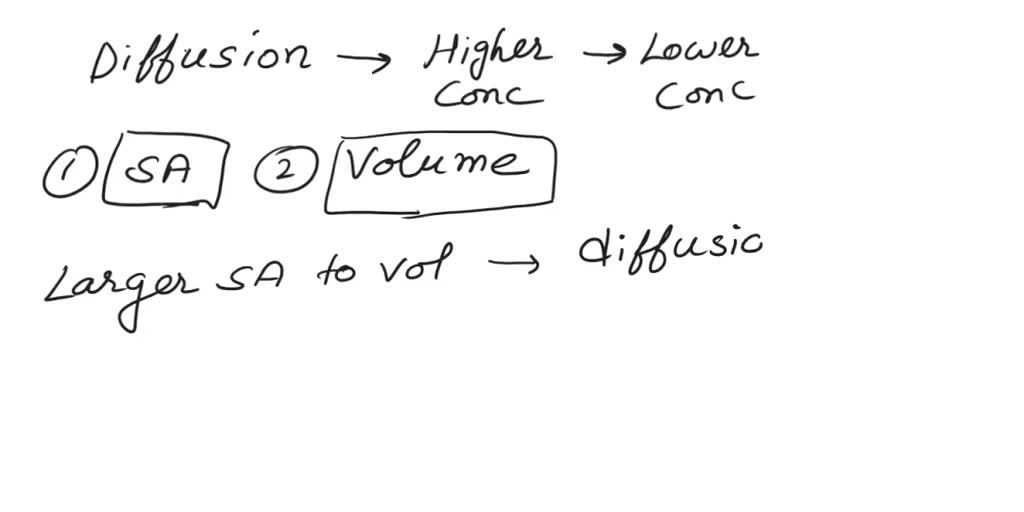 Diffusion → Higher Conc → Lower Conc
① SA ② Volume
Larger SA to vol → diffusio